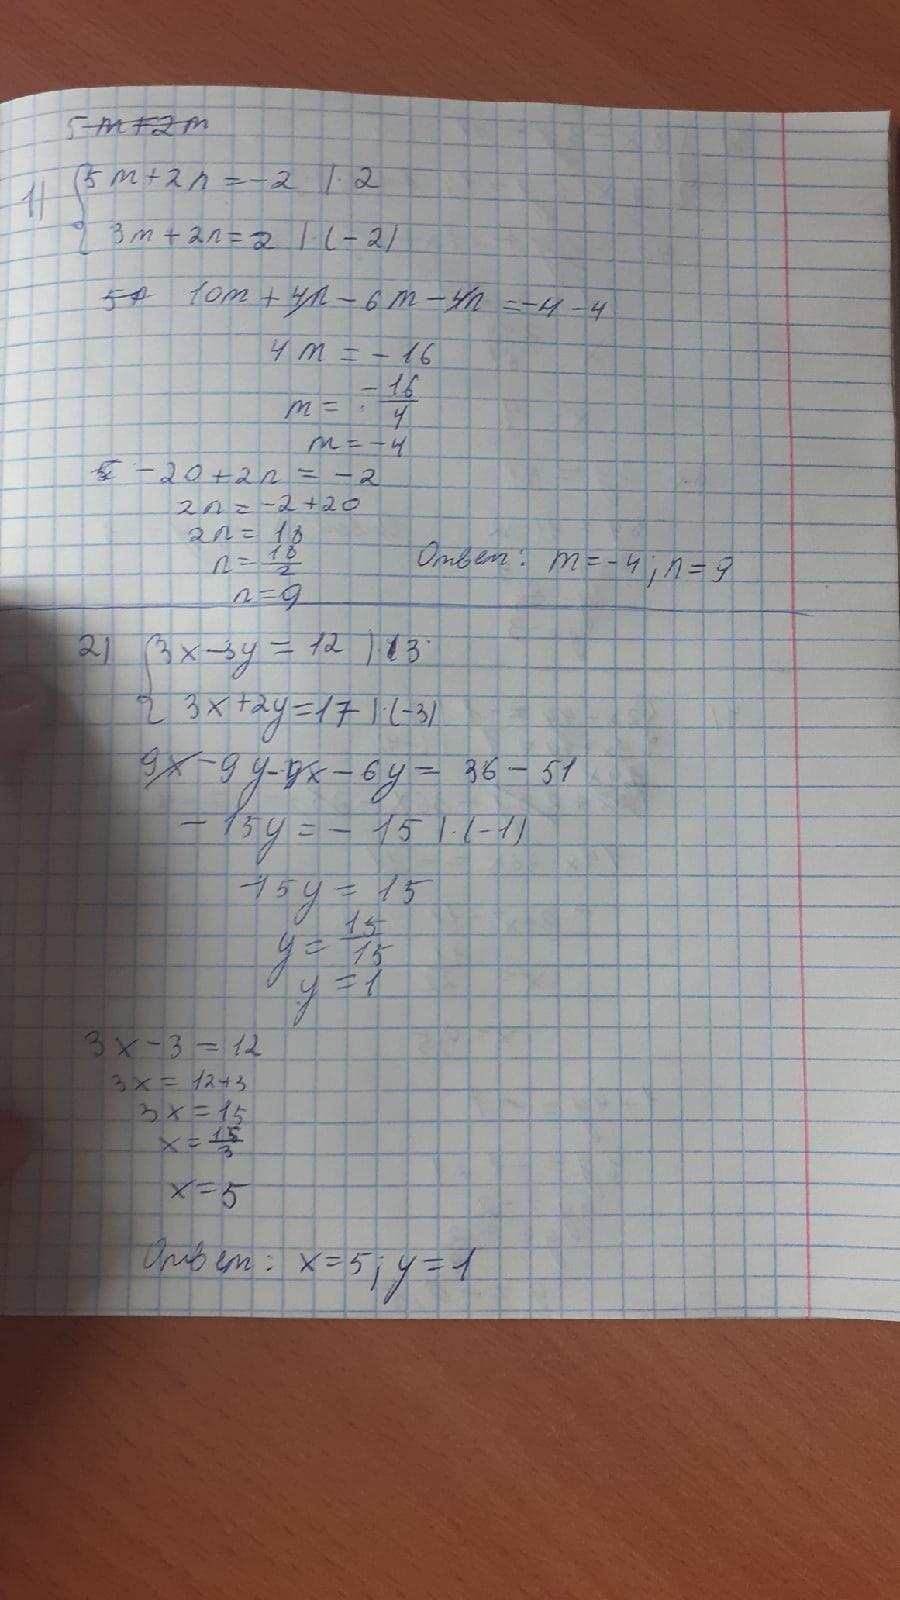 5 m+2m
1) { 5m+2n=-2 | · 2
3m+2n=2 | · (-2)
10m+4n-6m-4n=-4-4
4m=-16
m=-16/4
m=-4
-20+2n=-2
2n=-2+20
2n=18
n=18/2
Ответ: m=-4; n=9
n=9
2) { 3x-3y=12 | · 3
3x+2y=17 | · (-3)
9x-9y-9x-6y=36-51
-15y=-15 | · (-1)
15y=15
y=15/15
y=1
3x-3=12
3x=12+3
3x=15
x=15/3
x=5
Ответ: x=5; y=1